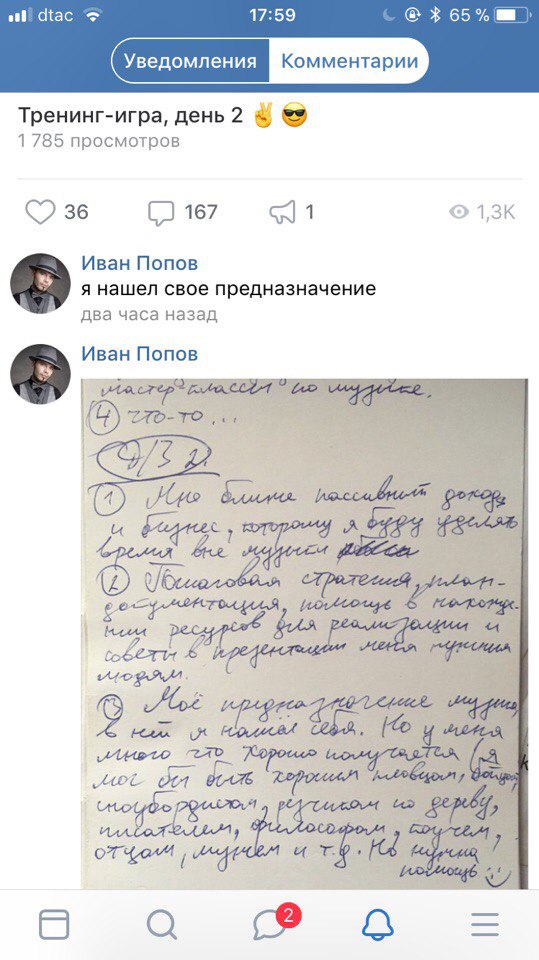 dtac 17:59 65 %
Уведомления Комментарии
Тренинг-игра, день 2 ✌️😎
1 785 просмотров
36 167 1 1,3K
Иван Попов
я нашел свое предназначение
два часа назад
Иван Попов
мастер классы по музыке.
4 что-то...
Д/З 2.
1 Мне ближе пассивный доход
и бизнес, которому я буду уделять
время вне музыки
2 Пошаговая стратегия, план-
документация, помощь в нахожде-
нии ресурсов для реализации и
советы в презентации меня нужным
людям.
3 Моё предназначение музыка,
в ней я нашёл себя. Но у меня
много что хорошо получается (я
мог бы быть хорошим пловцом,
сноубордистом, резчиком по дереву,
писателем, философом, коучем,
отцом, мужем и т.д. Но нужна
помощь :)
2